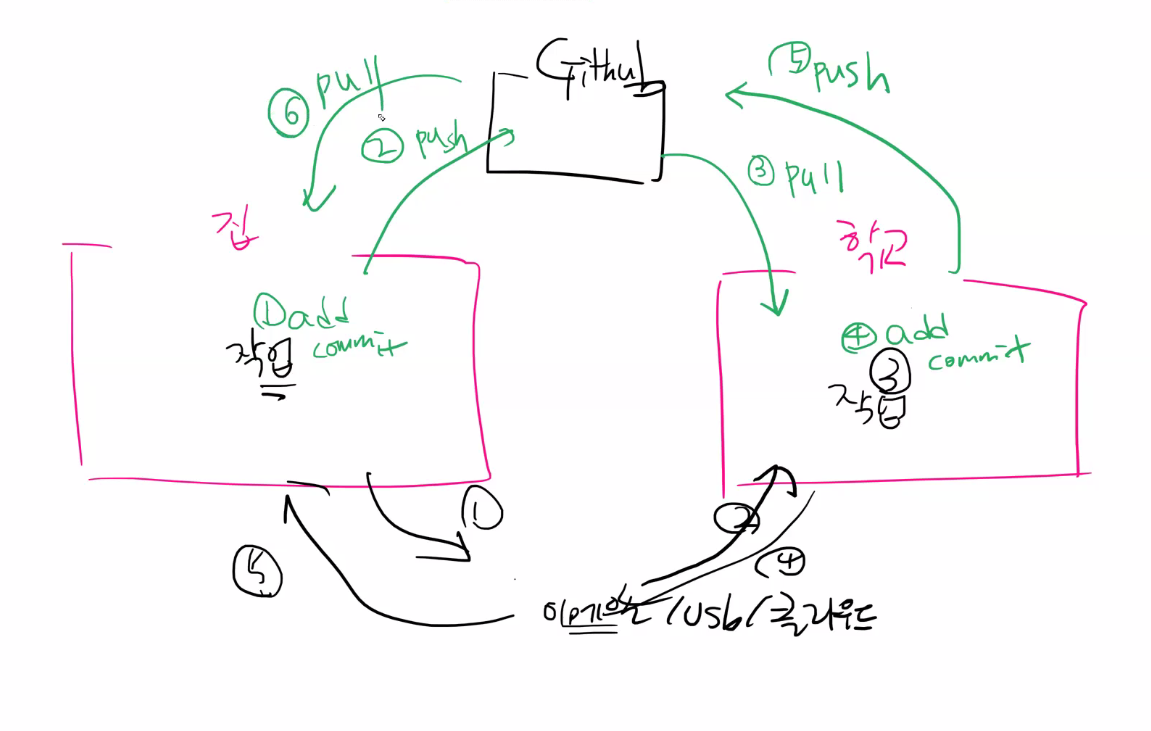 Github
⑤ push
⑥ pull
② push
③ pull
집
학교
① add
commit
작업
④ add
commit
③
작업
①
②
⑤
④
/ USB / 클라우드